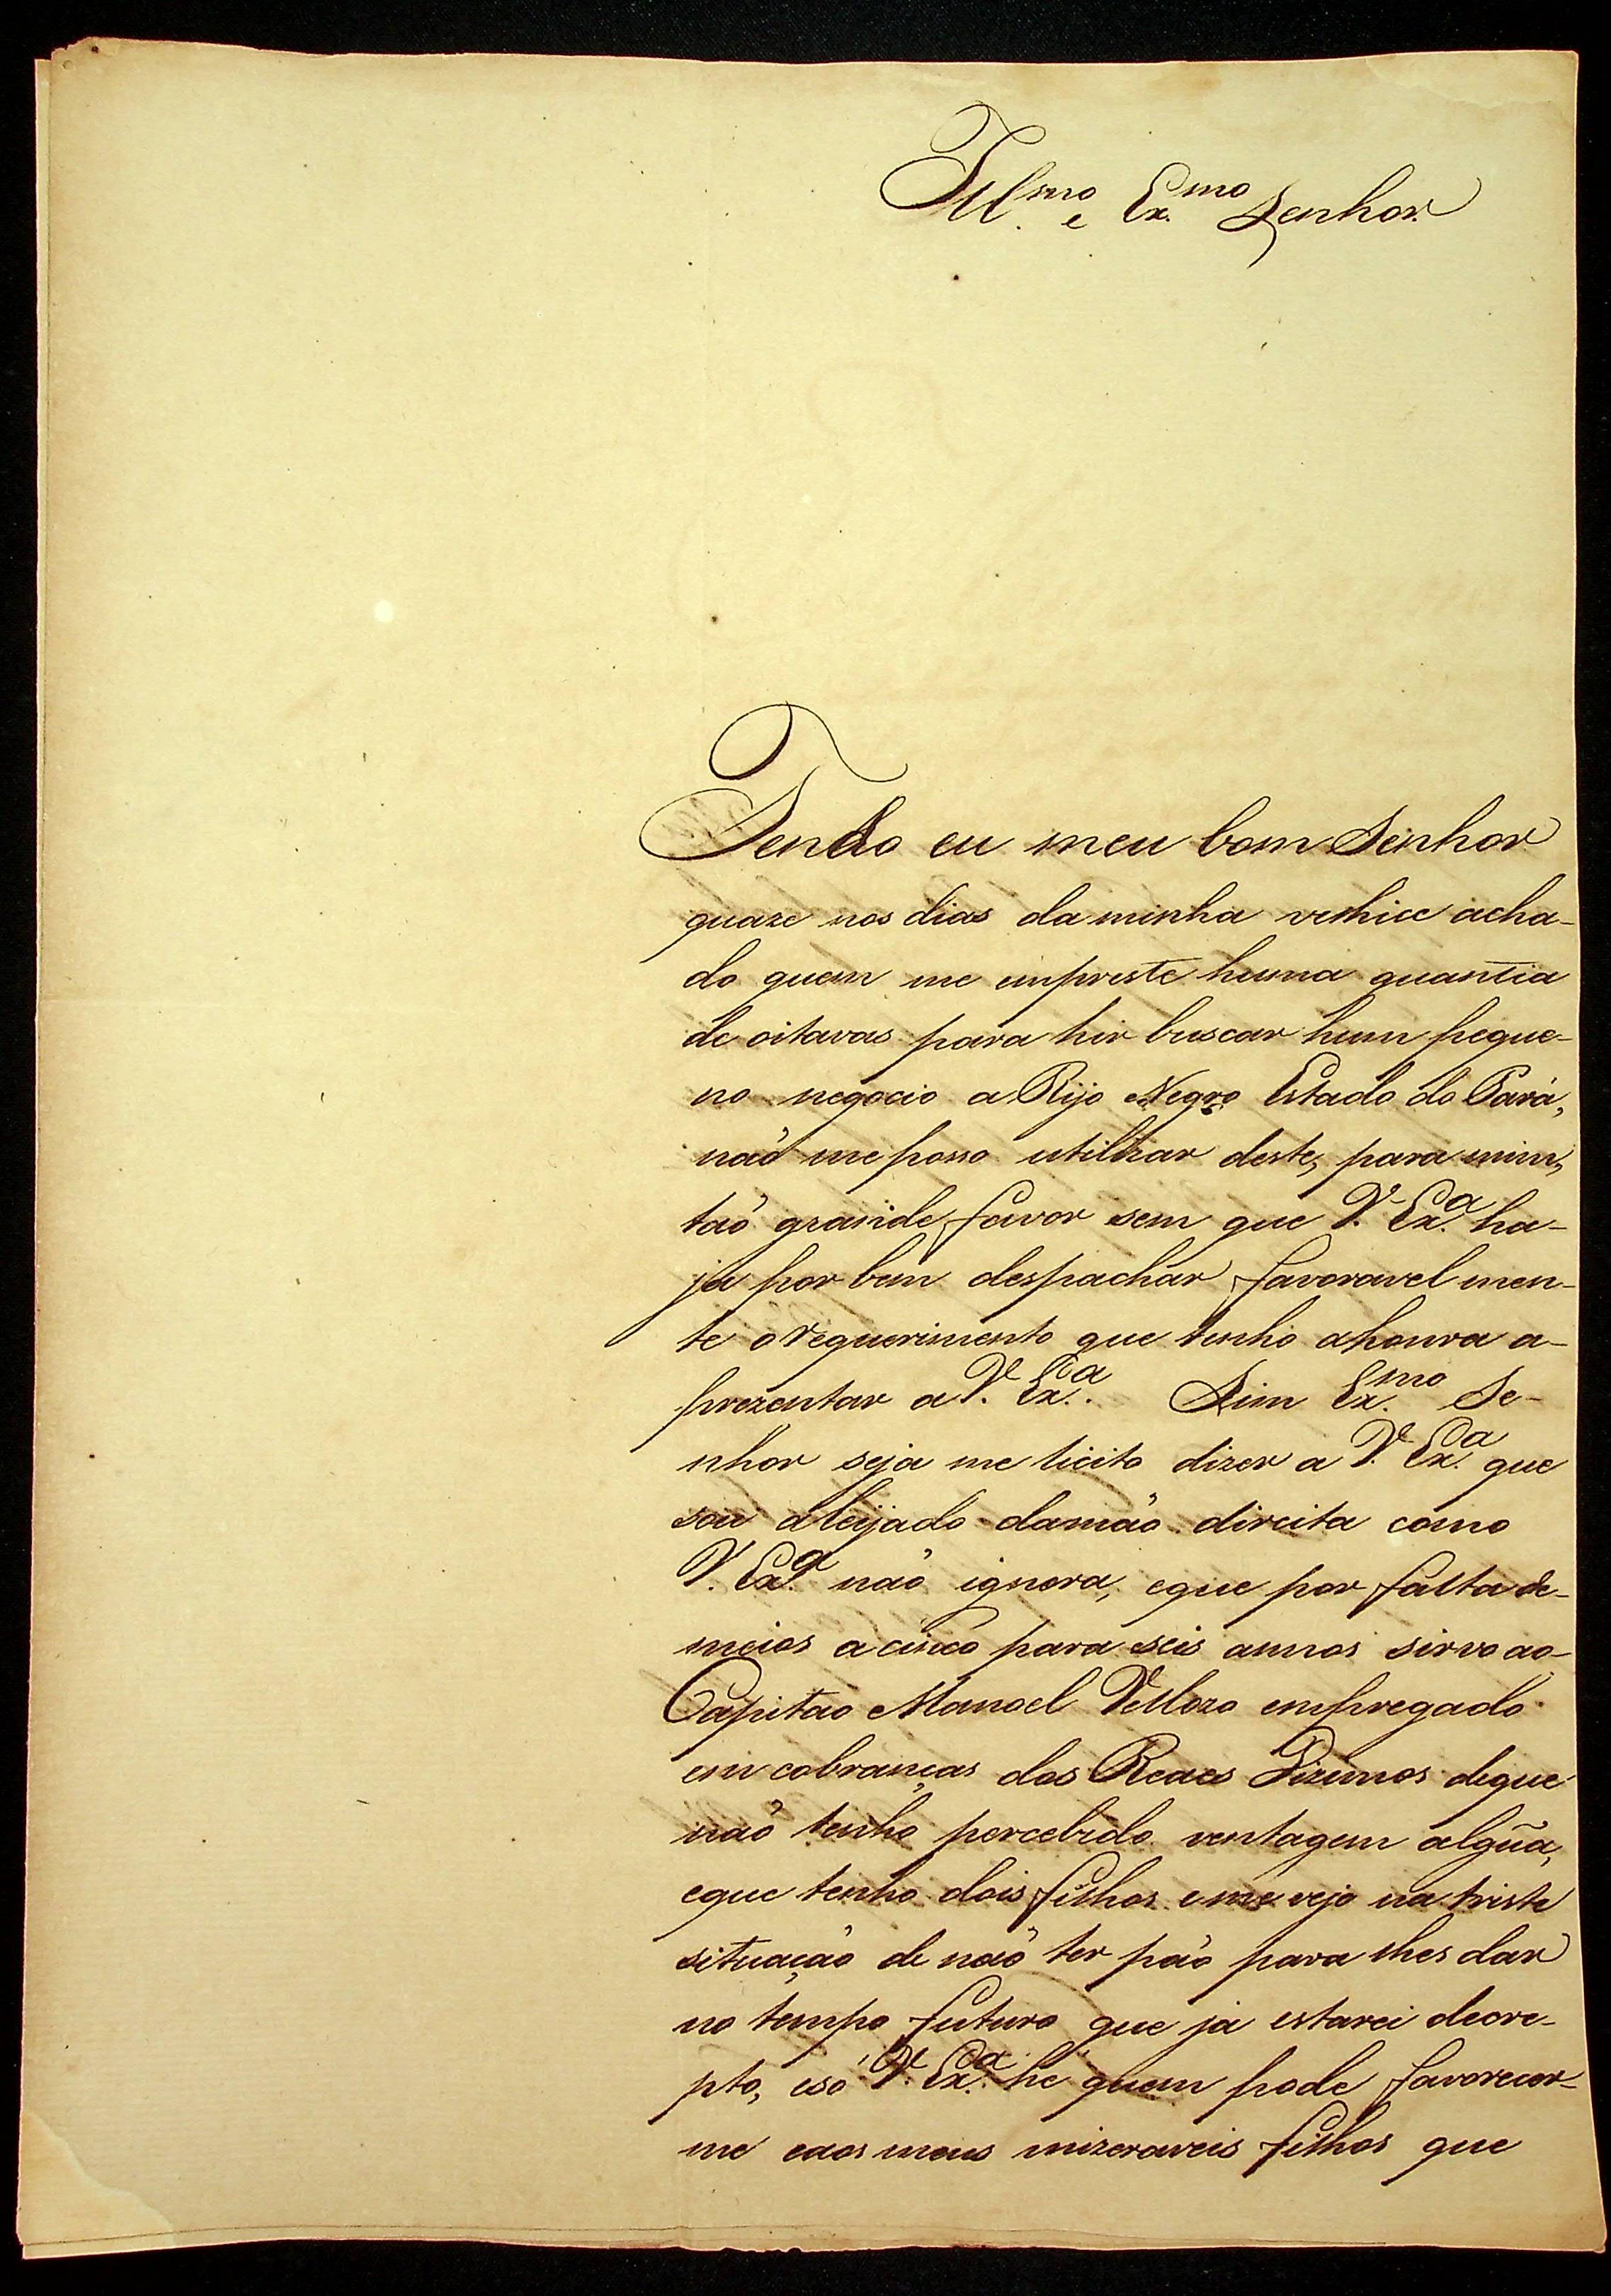 Ill.mo e Ex.mo Senhor.
Tendo eu meu bom Senhor
quaze nos dias da minha velhice acha-
do quem me empreste huma quantia
de oitavas para hir buscar hum peque-
no negocio a Rijo Negro Estado do Pará,
naõ me posso utilizar deste, para mim,
taõ grande favor sem que V. Ex.a ha-
ja por bem despachar favoravel men-
te o requerimento que tenho ahonra a-
prezentar a V. Ex.a. Sim Ex.mo Se-
nhor seja me licito dizer a V. Ex.a que
sou aleijado damaõ direita como
V. Ex.a naõ ignora, eque por falta de-
meios a cinco para seis annos sirvo ao
Capitao Manoel Vellozo empregado
em cobranças dos Reaes Dizimos deque
naõ tenho percebido ventagem algũa,
eque tenho dois filhos emevejo na triste
situaçaõ de naõ ter paõ para lhes dar
no tempo futuro que já estarei decre-
pto, esó V. Ex.a hé quem pode favorecer-
me eaos meus mizeraveis filhos que